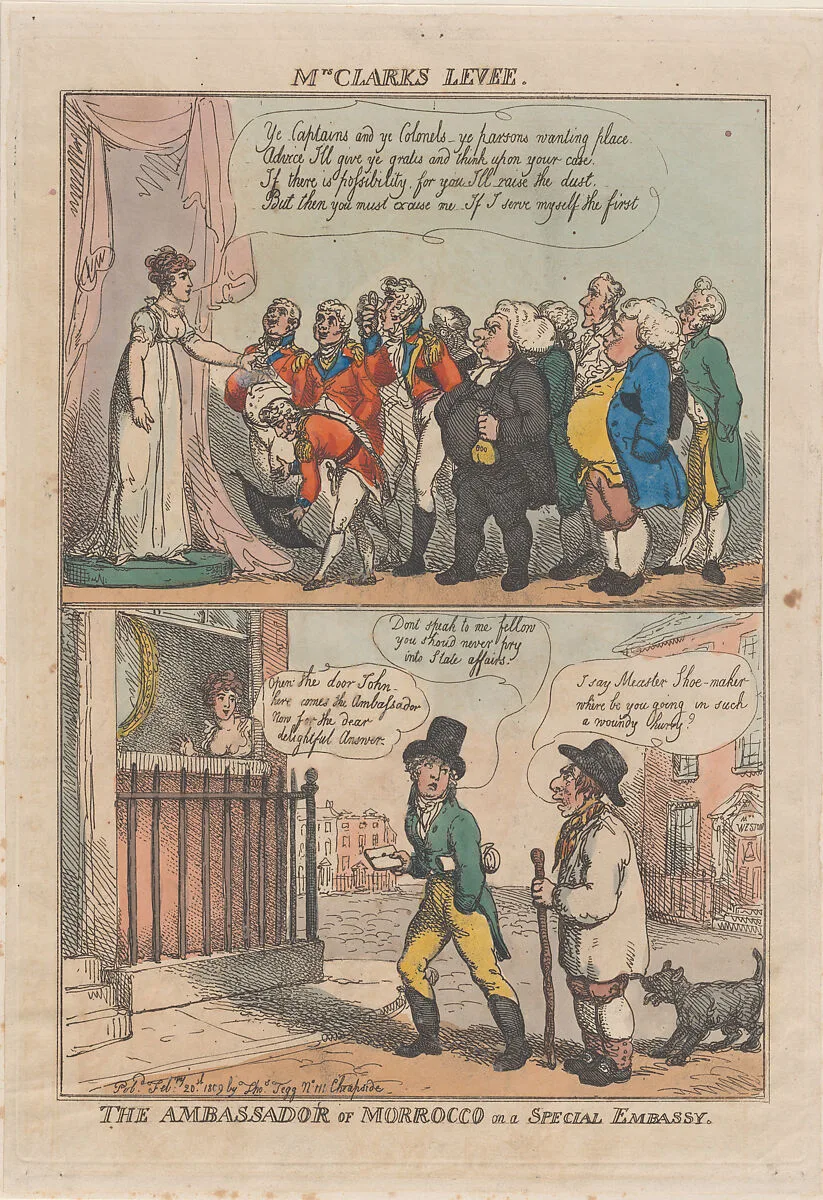 Mrs CLARKS LEVEE.
Ye Captains and ye Colonels - ye parsons wanting place.
Advice I'll give ye gratis and think upon your case.
If there is possibility, for you I'll raise the dust.
But then you must excuse me - If I serve myself the first
600
Dont speak to me fellow
you shoud never pry
into State affairs.
Open the door John
here comes the Ambassador
Now for the dear
delightful Answer.
I say Measter Shoe-maker
where be you going in such
a woundy hurry?
Mrs
WESTON
Pubd Feby 20d 1809 by Thos Tegg No 111 Cheapside
THE AMBASSADOR OF MORROCCO on a SPECIAL EMBASSY.